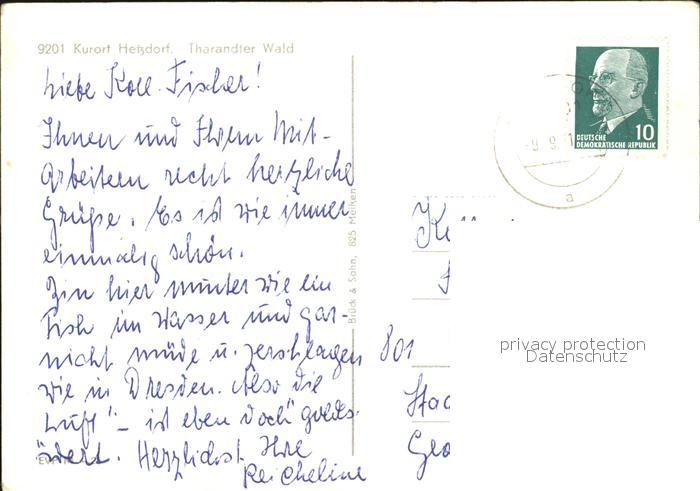 9201 Kurort Hetzdorf. Tharandter Wald
Liebe Koll. Fischer!
Ihnen und Ihren Mit-
arbeitern recht herzliche
Grüße. Es ist wie immer
einmalig schön.
Bin hier munter wie ein
Fisch im Wasser und gar-
nicht müde u. zerschlagen
wie in Dresden. Also die
"Luft" - ist eben doch "goldes-
wert. Herzlichst Ihre
Reicheline
Brück & Sohn, 825 Meißen
10
DEUTSCHE
DEMOKRATISCHE REPUBLIK
-9. 9. 71
a
801
privacy protection
Datenschutz